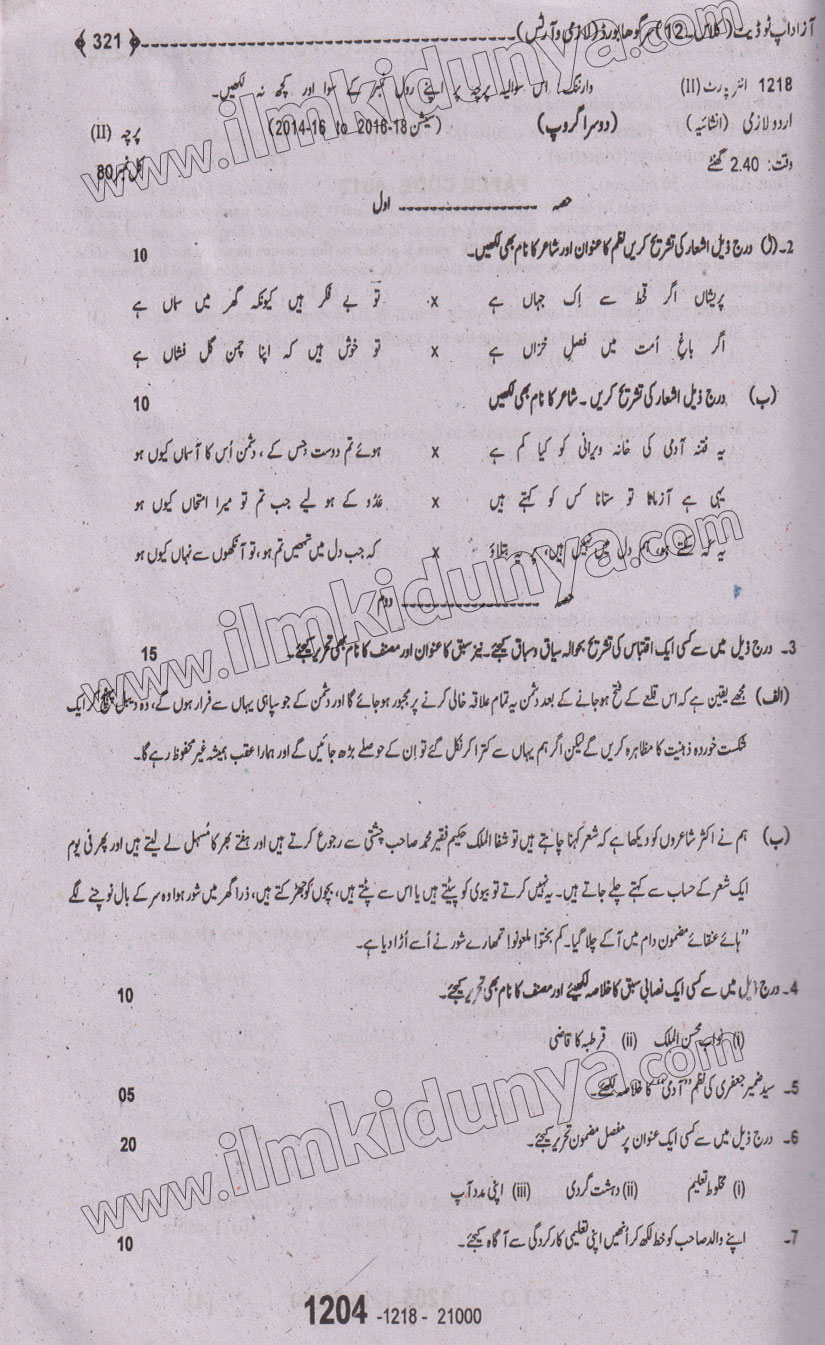 آزاد اپ ٹو ڈیٹ (کلاس۔12) سرگودھا بورڈ (لازمی و آرٹس) ﴿321﴾
1218 انٹر پارٹ (II) وارننگ! اس سوالیہ پرچہ پر اپنے رول نمبر کے سوا اور کچھ نہ لکھیں۔
اردو لازمی (انشائیہ) (دوسرا گروپ) (سیشن 18-2016 to 16-2014) پرچہ (II)
وقت: 2.40 گھنٹے کل نمبر 80
حصہ اول
2۔ (ا) درج ذیل اشعار کی تشریح کریں نظم کا عنوان اور شاعر کا نام بھی لکھیں۔ 10
پریشاں اگر قحط سے اِک جہاں ہے x تو بے فکر ہیں کیونکہ گھر میں سماں ہے
اگر باغِ اُمت میں فصلِ خزاں ہے x تو خوش ہیں کہ اپنا چمن گل فشاں ہے
(ب) درج ذیل اشعار کی تشریح کریں۔ شاعر کا نام بھی لکھیں 10
یہ فتنہ آدمی کی خانہ ویرانی کو کیا کم ہے x ہوئے تم دوست جس کے، دشمن اُس کا آسماں کیوں ہو
یہی ہے آزمانا تو ستانا کس کو کہتے ہیں x عدُو کے ہو لیے جب تم تو میرا امتحاں کیوں ہو
یہ کہہ سکتے ہو، ہم دل میں نہیں ہیں، پر یہ بتلاؤ x کہ جب دل میں تمھیں تم ہو، تو آنکھوں سے نہاں کیوں ہو
حصہ دوم
3۔ درج ذیل میں سے کسی ایک اقتباس کی تشریح بحوالہ سیاق و سباق کیجئے۔ نیز سبق کا عنوان اور مصنف کا نام بھی تحریر کیجئے۔ 15
(الف) مجھے یقین ہے کہ اس قلعے کے فتح ہو جانے کے بعد دشمن یہ تمام علاقہ خالی کرنے پر مجبور ہو جائے گا اور دشمن کے جو سپاہی یہاں سے فرار ہوں گے، وہ دیبل پہنچ کر ایک
شکست خوردہ ذہنیت کا مظاہرہ کریں گے لیکن اگر ہم یہاں سے کترا کر نکل گئے تو اِن کے حوصلے بڑھ جائیں گے اور ہمارا عقب ہمیشہ غیر محفوظ رہے گا۔
(ب) ہم نے اکثر شاعروں کو دیکھا ہے کہ شعر کہنا چاہتے ہیں تو شفا الملک حکیم فقیر محمد صاحب چشتی سے رجوع کرتے ہیں اور ہفتے بھر کا مُسہل لے لیتے ہیں اور پھر فی یوم
ایک شعر کے حساب سے کہتے چلے جاتے ہیں۔ یہ نہیں کرتے تو بیوی کو پیٹتے ہیں یا اس سے پٹتے ہیں، بچوں کو جھڑکتے ہیں، ذرا گھر میں شور ہوا وہ سر کے بال نوچنے لگے
"ہائے عنقائے مضمون دام میں آ کے چلا گیا۔ کم بختو! ملعونو! تمھارے شور نے اُسے اُڑا دیا ہے۔
4۔ درج ذیل میں سے کسی ایک نصابی سبق کا خلاصہ لکھیئے اور مصنف کا نام بھی تحریر کیجئے۔ 10
(i) نواب محسن الملک (ii) قرطبہ کا قاضی
5۔ سید ضمیر جعفری کی نظم "آدمی" کا خلاصہ لکھئے۔ 05
6۔ درج ذیل میں سے کسی ایک عنوان پر مفصل مضمون تحریر کیجئے۔ 20
(i) مخلوط تعلیم (ii) دہشت گردی (iii) اپنی مدد آپ
7۔ اپنے والد صاحب کو خط لکھ کر اُنھیں اپنی تعلیمی کارکردگی سے آگاہ کیجئے۔ 10
1204 -1218 - 21000
www.ilmkidunya.com
www.ilmkidunya.com
www.ilmkidunya.com